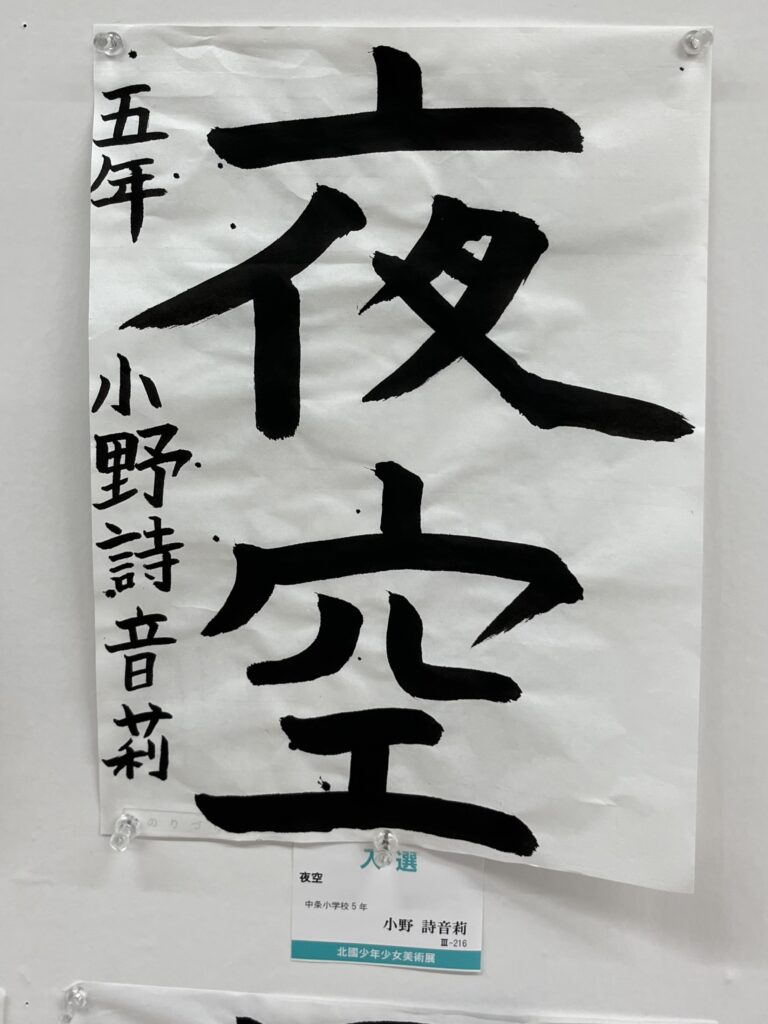 夜空
五年 小野詩音莉
のりづ
入選
夜空
中条小学校5年
小野 詩音莉
Ⅲ-216
北國少年少女美術展